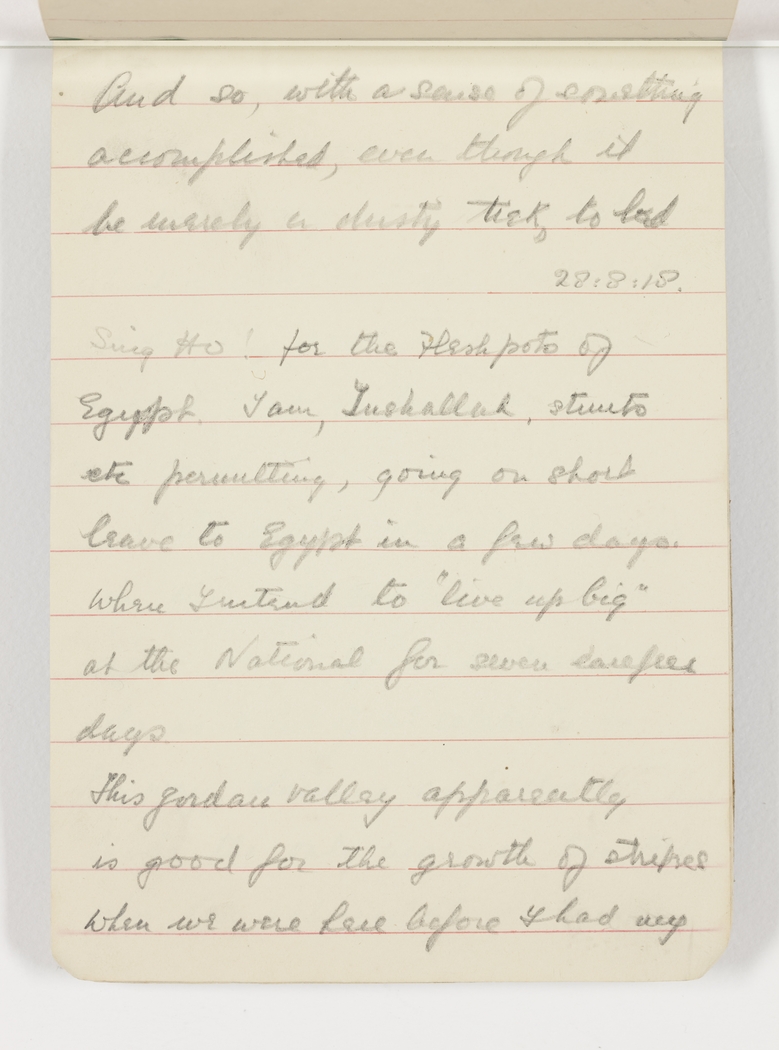 And so, with a sense of something
accomplished, even though it
be merely a dusty tick, to bed
28:8:18.
Sing Ho! for the Fleshpots of
Egypt. I am, Inshallah, stunts
etc permitting, going on short
leave to Egypt in a few days.
When I intend to "live up big"
at the National for seven carefree
days.
This Jordan valley apparently
is good for the growth of stripes
When we were here before I had my